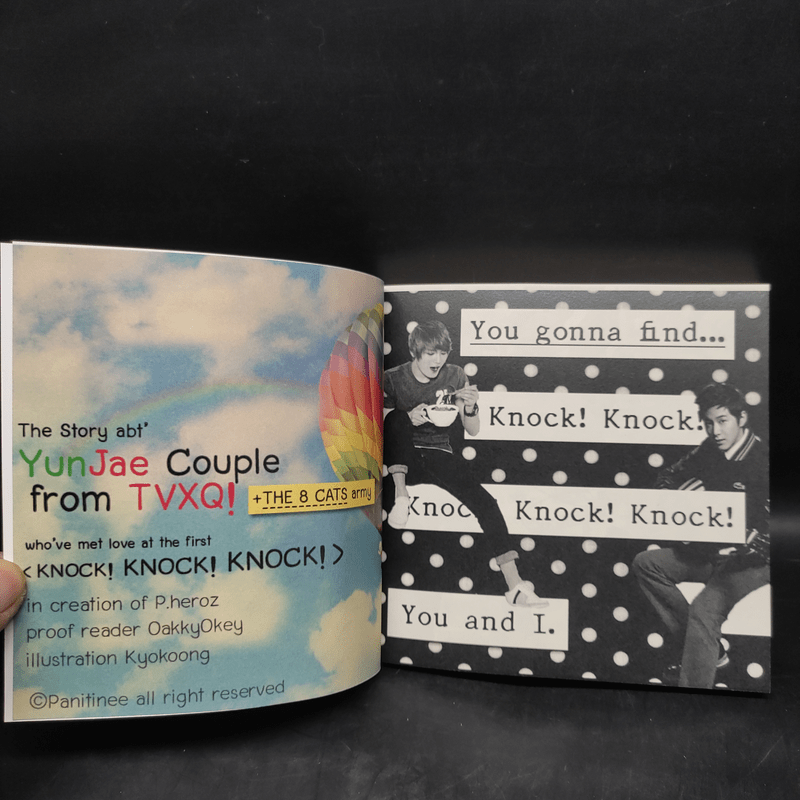 The Story abt'
YunJae Couple
from TVXQ!
+THE 8 CATS army
who've met love at the first
<KNOCK! KNOCK! KNOCK!>
in creation of P.heroz
proof reader OakkyOkey
illustration Kyokoong
©Panitinee all right reserved
You gonna find...
Knock! Knock!
Knock! Knock! Knock!
You and I.